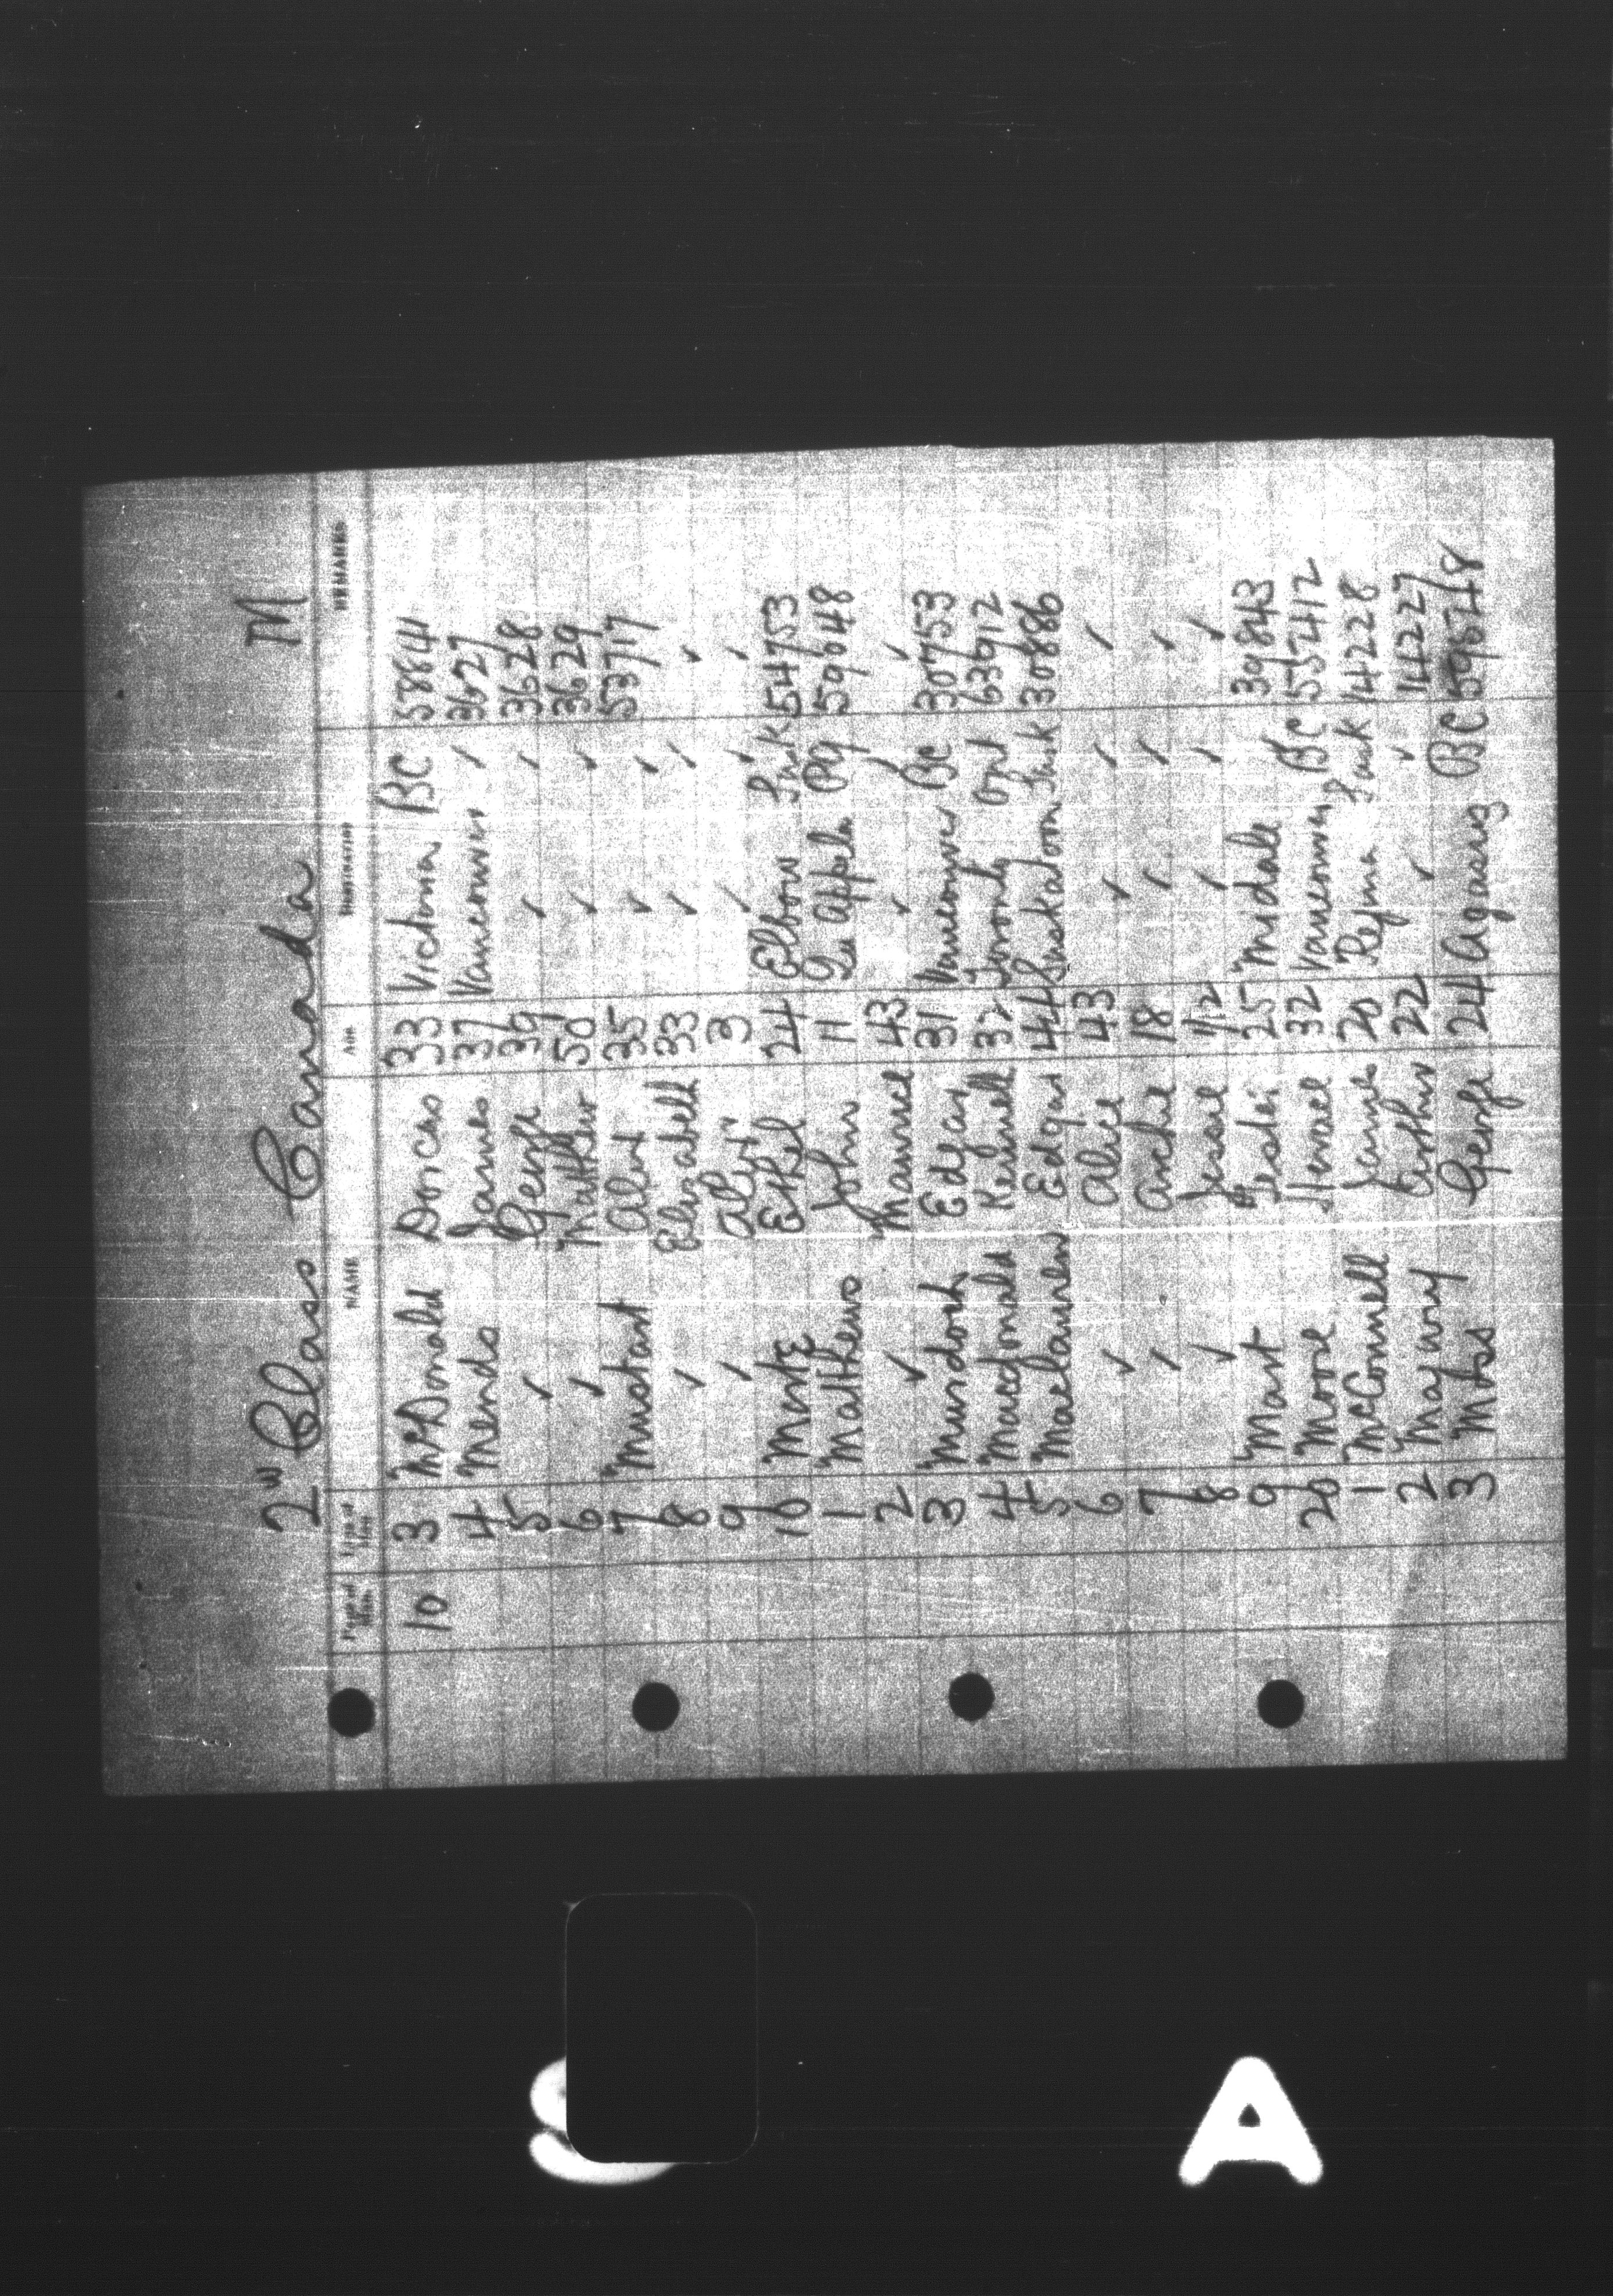 2nd Class Canada M
Page of Line of NAME AGE DESTINATION REMARKS
10 3 McDonald Dorcas 33 Victoria BC 58841
4 Mends James 37 Vancouver ✓ 3627
5 ✓ George 39 ✓ ✓ 3628
6 ✓ Matthew 50 ✓ ✓ 3629
7 Mustart Alext 35 ✓ ✓ 53717
8 ✓ Elizabeth 33 ✓ ✓ ✓
9 ✓ Alext 3 ✓ ✓ ✓
10 Ethel 24 Elbow Sask 54753
1 Matthews John 11 PQ 59048
2 ✓ Manuel 43 ✓ ✓ ✓
3 Murdoch Edgar 31 Vancouver BC 30753
4 Macdonald 32 Toronto Ont 63912
5 Maclauren Edgar 44 Saskatoon Sask 30886
6 ✓ Alice 43 ✓ ✓ ✓
7 ✓ Archie 18 ✓ ✓ ✓
8 ✓ Jessie /12 ✓ ✓ ✓
9 Mast 25 Midale ✓ 39843
20 Moore 32 Vancouver BC 55412
1 McConnell James 20 Regina Sask 14228
2 Arthur 22 ✓ ✓ 14227
3 George 24 BC 59648
A